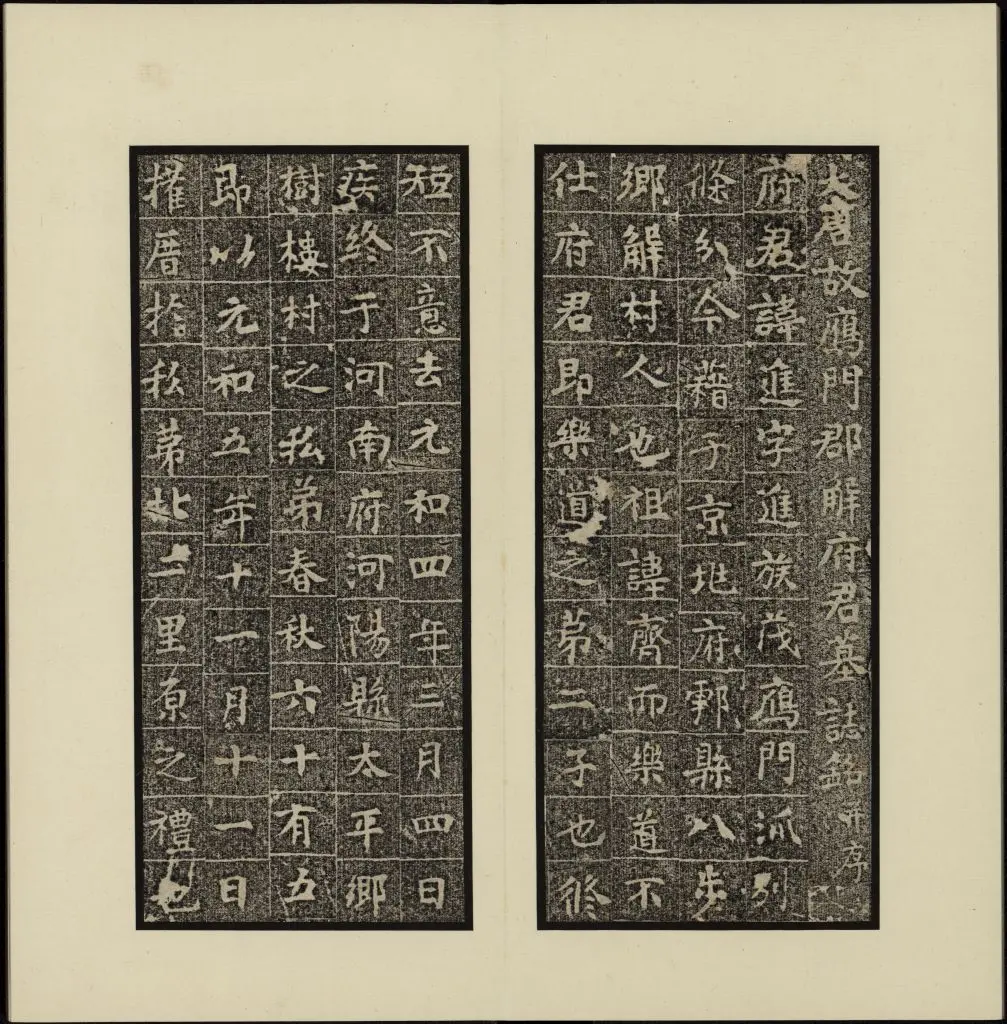 大唐故鴈門郡解府君墓誌銘并序
府君諱進字進族茂鴈門派別
條分今藉子京地府鄠縣八步
鄉解村人也祖諱齊而樂道不
仕府君即樂道之弟二子也修
短不意去元和四年三月四日
疾終于河南府河陽縣太平鄉
樹樓村之私弟春秋六十有五
即以元和五年十一月十一日
擇厝於私弟北二里原之禮也